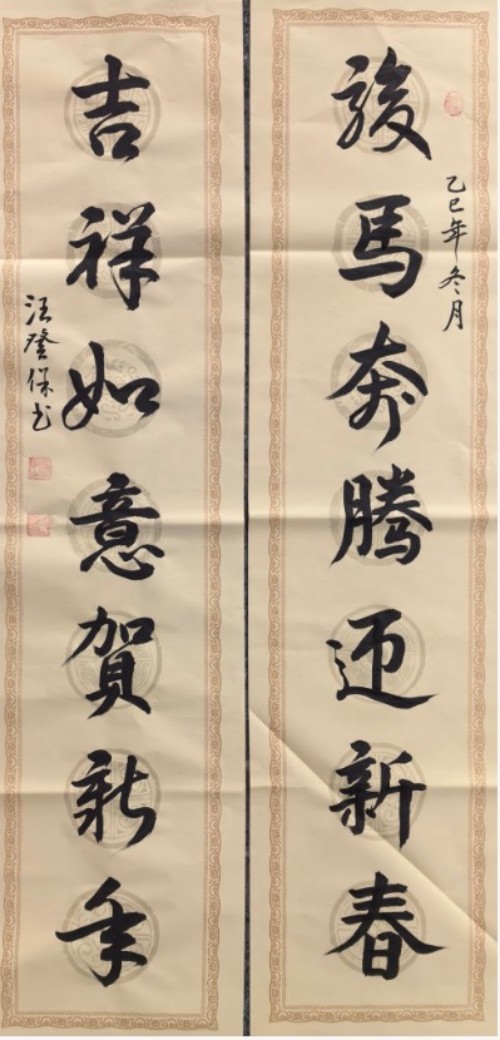 乙巳年冬月
駿馬奔腾迎新春
吉祥如意賀新年
汪登保书